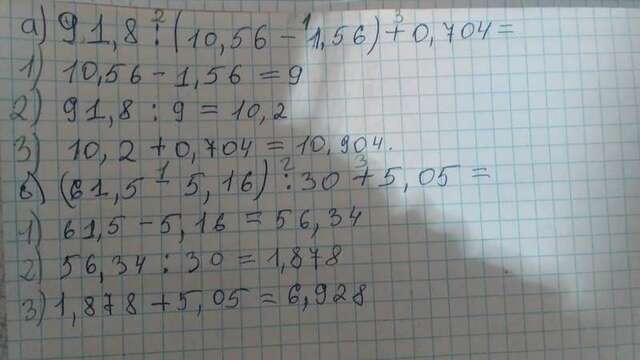 а) 91,8 : (10,56 - 1,56) + 0,704 =
1) 10,56 - 1,56 = 9
2) 91,8 : 9 = 10,2
3) 10,2 + 0,704 = 10,904.
в) (61,5 - 5,16) : 30 + 5,05 =
1) 61,5 - 5,16 = 56,34
2) 56,34 : 30 = 1,878
3) 1,878 + 5,05 = 6,928